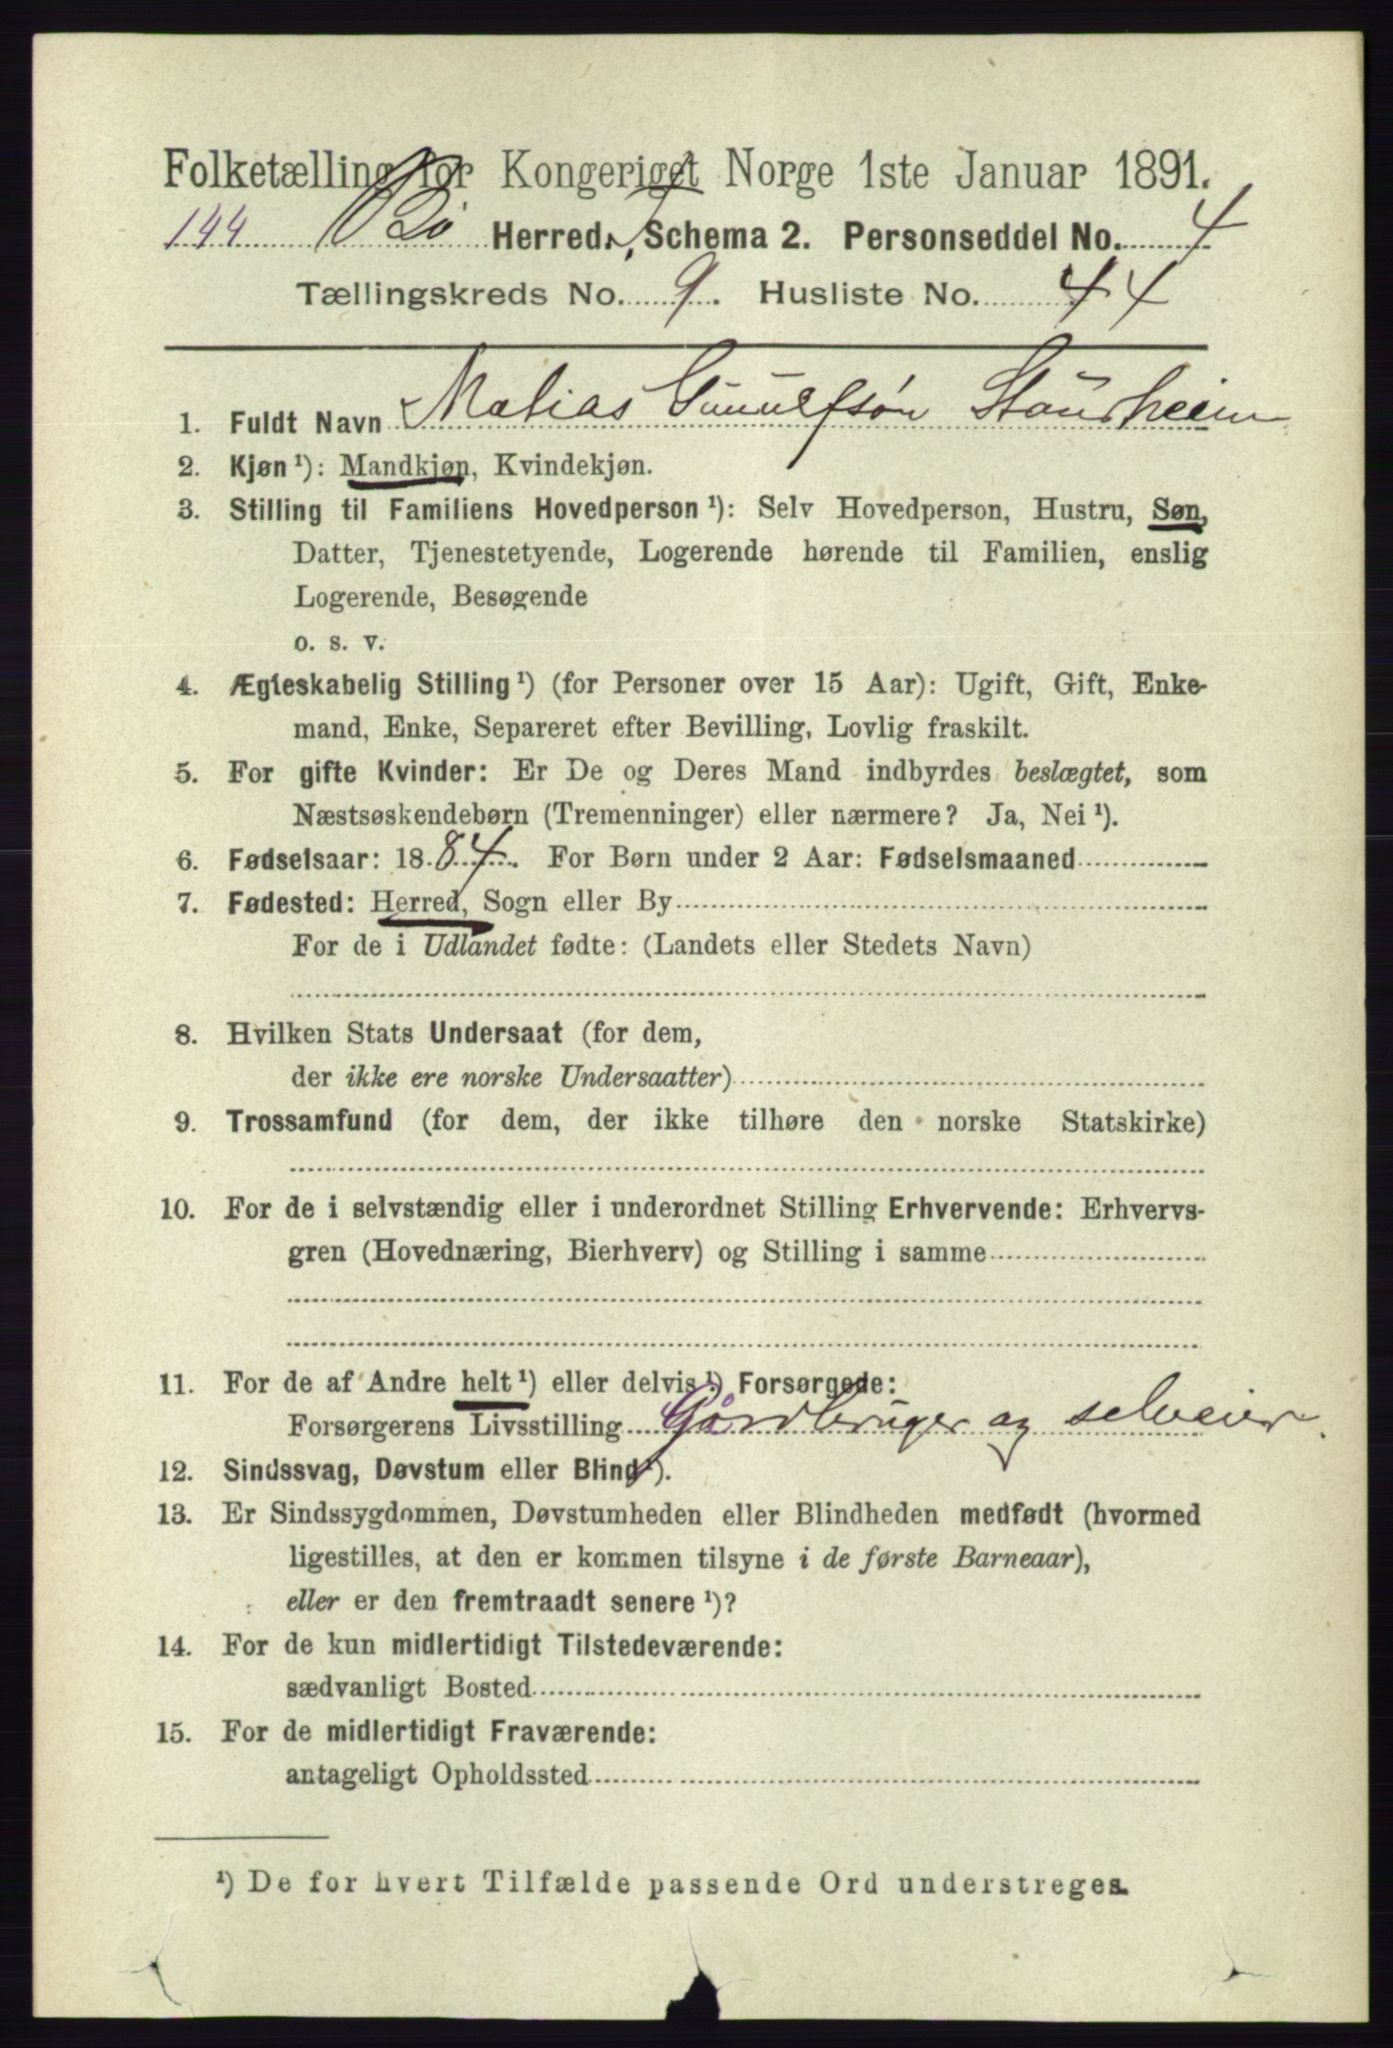 Folketælling for Kongeriget Norge 1ste Januar 1891.
144 Bø Herred. Schema 2. Personseddel No. 4
Tællingskreds No. 9. Husliste No. 44
1. Fuldt Navn Matias Gunulfsøn Staurheim
2. Kjøn ¹): Mandkjøn, Kvindekjøn.
3. Stilling til Familiens Hovedperson ¹): Selv Hovedperson, Hustru, Søn,
Datter, Tjenestetyende, Logerende hørende til Familien, enslig
Logerende, Besøgende
o. s. v.
4. Ægteskabelig Stilling ¹) (for Personer over 15 Aar): Ugift, Gift, Enke-
mand, Enke, Separeret efter Bevilling, Lovlig fraskilt.
5. For gifte Kvinder: Er De og Deres Mand indbyrdes beslægtet, som
Næstsøskendebørn (Tremenninger) eller nærmere? Ja, Nei ¹).
6. Fødselsaar: 1884. For Børn under 2 Aar: Fødselsmaaned
7. Fødested: Herred, Sogn eller By
For de i Udlandet fødte: (Landets eller Stedets Navn)
8. Hvilken Stats Undersaat (for dem,
der ikke ere norske Undersaatter)
9. Trossamfund (for dem, der ikke tilhøre den norske Statskirke)
10. For de i selvstændig eller i underordnet Stilling Erhvervende: Erhvervs-
gren (Hovednæring, Bierhverv) og Stilling i samme
11. For de af Andre helt ¹) eller delvis ¹) Forsørgede:
Forsørgerens Livsstilling Gårdbruger og selveier.
12. Sindssvag, Døvstum eller Blind ¹).
13. Er Sindssygdommen, Døvstumheden eller Blindheden medfødt (hvormed
ligestilles, at den er kommen tilsyne i de første Barneaar),
eller er den fremtraadt senere ¹)?
14. For de kun midlertidigt Tilstedeværende:
sædvanligt Bosted
15. For de midlertidigt Fraværende:
antageligt Opholdssted
¹) De for hvert Tilfælde passende Ord understreges.